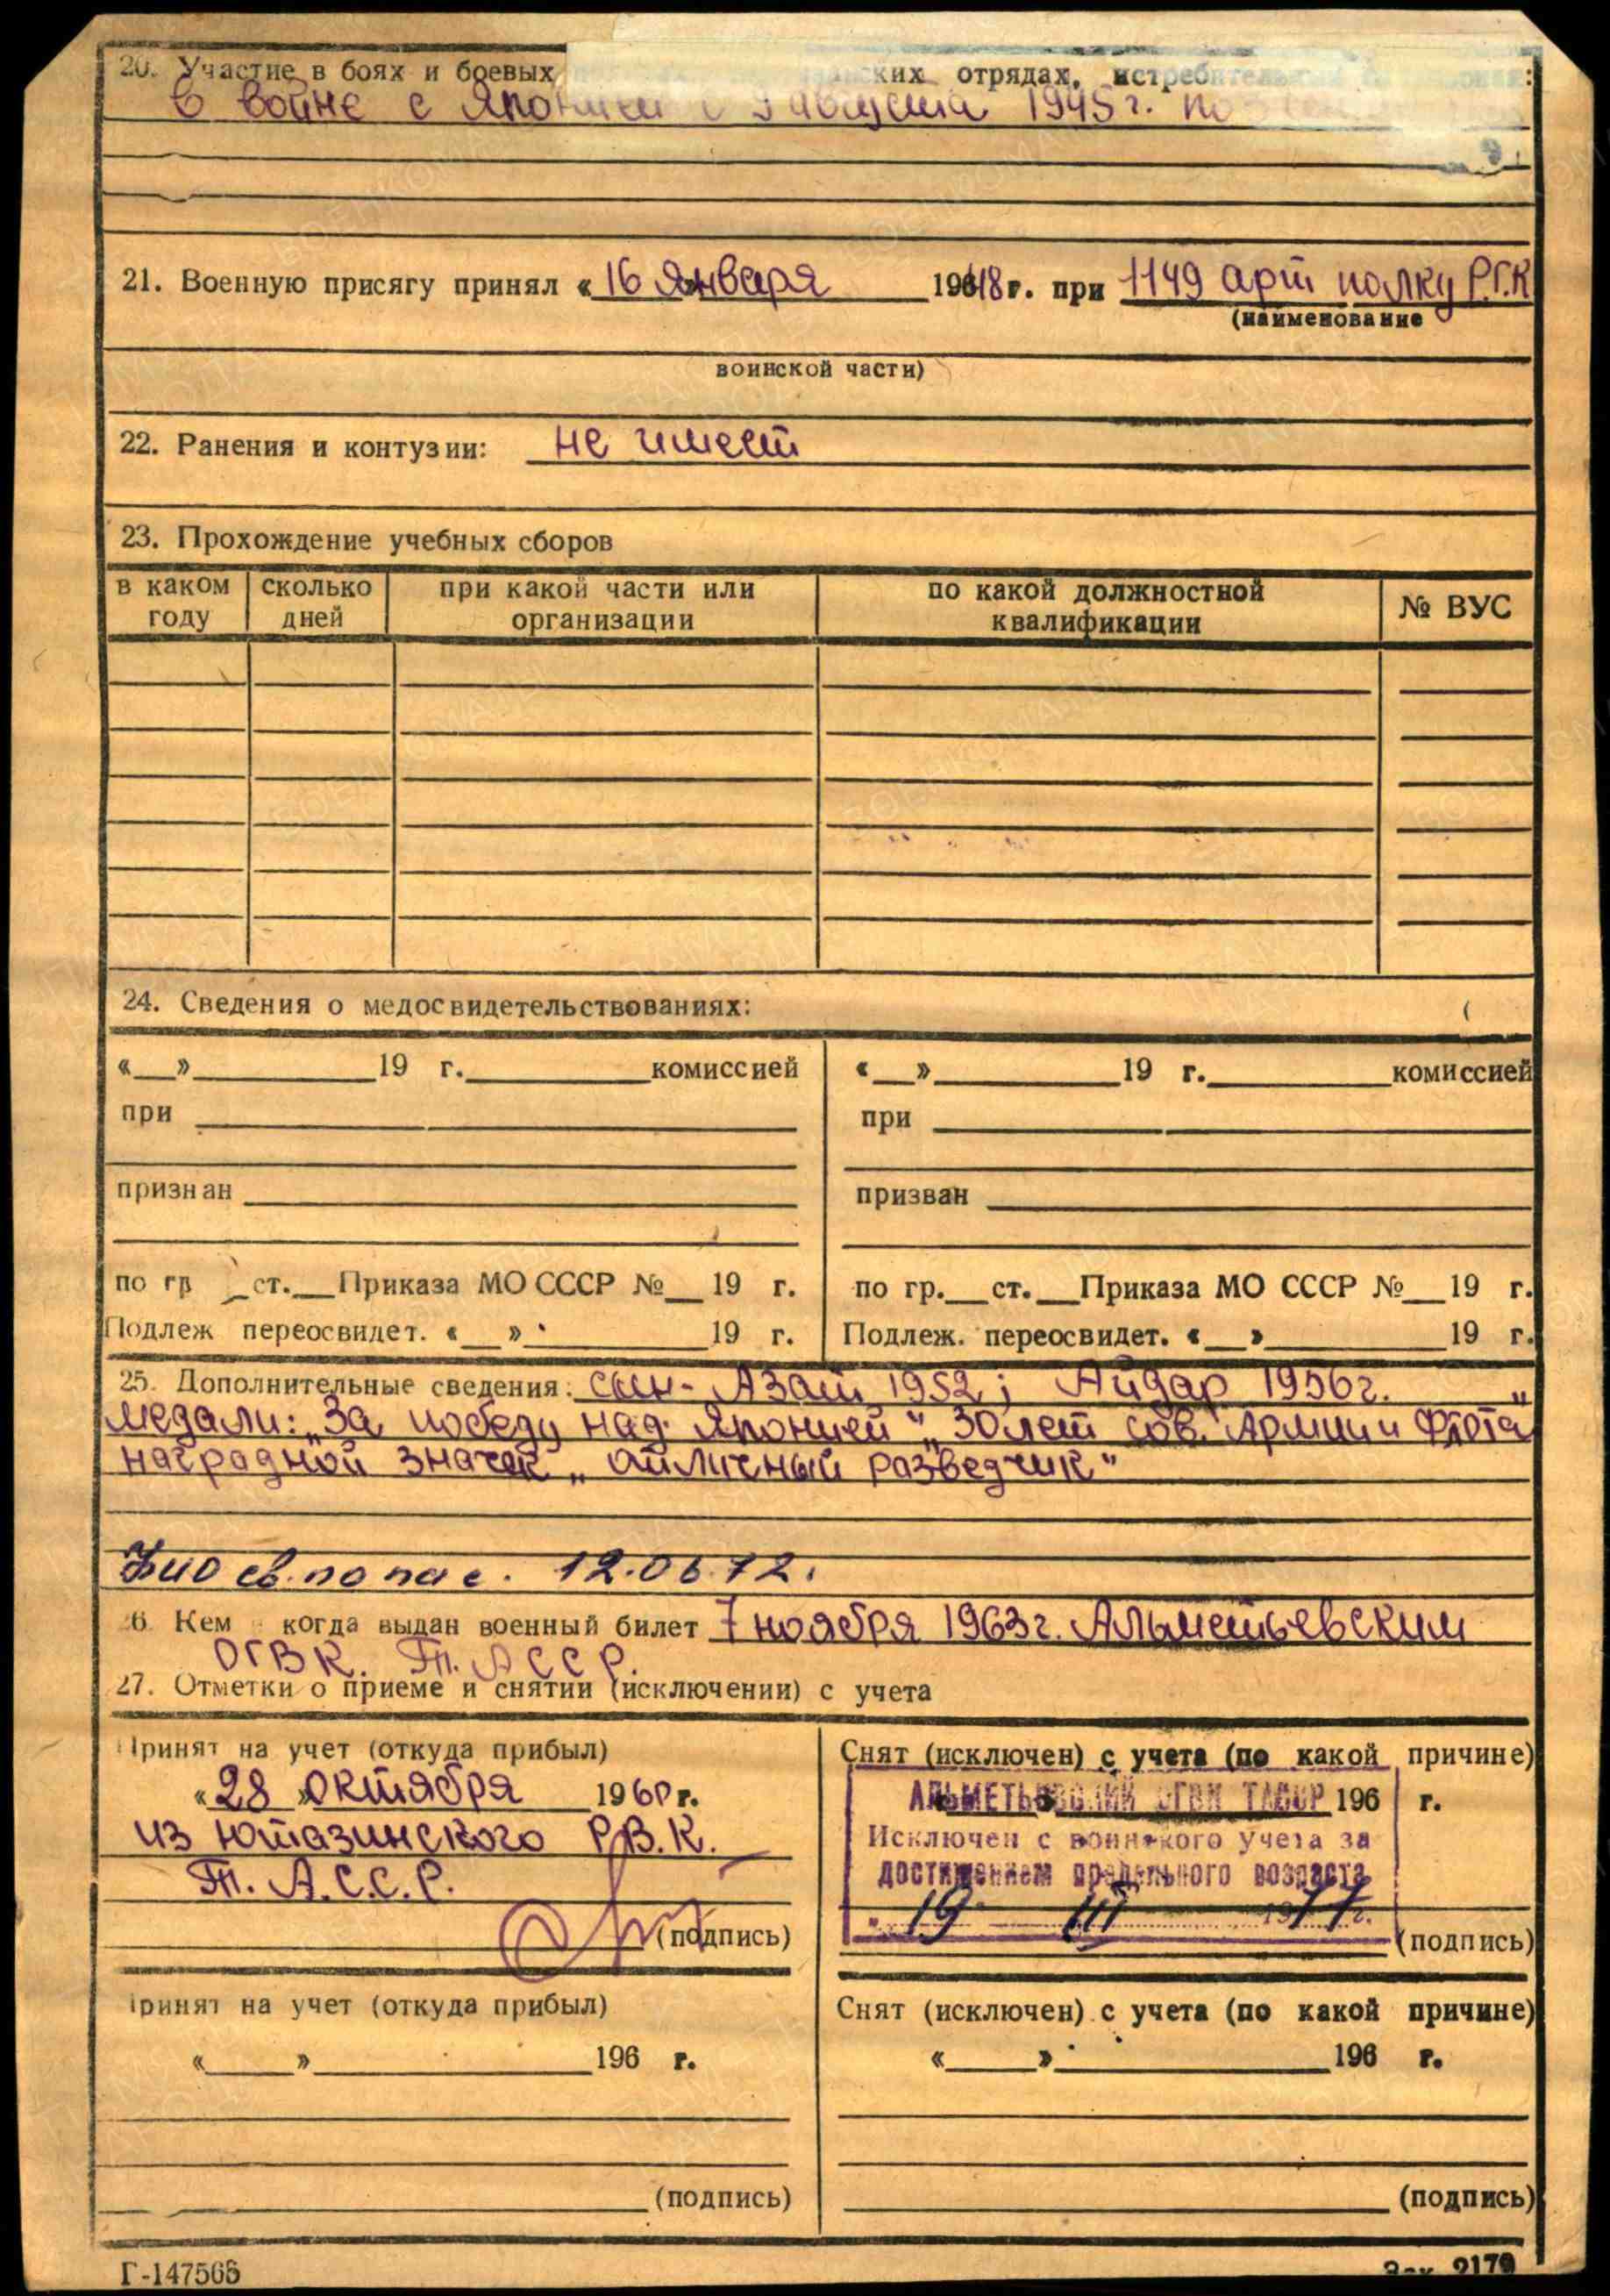 20. Участие в боях и боевых ских отрядах,
в войне с Японией с 9 августа 1945 г. по
21. Военную присягу принял « 16 Января 1948 г. при 1149 арт полку Р.Г.К
(наименование
воинской части)
22. Ранения и контузии: не имеет
23. Прохождение учебных сборов
в каком году | сколько дней | при какой части или организации | по какой должностной квалификации | № ВУС
24. Сведения о медосвидетельствованиях:
«__» 19 г. комиссией «__» 19 г. комиссией
при при
признан призван
по гр ст. Приказа МО СССР № 19 г. по гр. ст. Приказа МО СССР № 19 г.
Подлеж переосвидет. «__» 19 г. Подлеж. переосвидет. «__» 19 г.
25. Дополнительные сведения: сын - Азат 1952; Айдар 1956 г.
медали: „За победу над Японией" „30 лет сов. Армии и Флота"
наградной значек „отличный разведчик"
12.06.72.
26. Кем когда выдан военный билет 7 ноября 1963 г. Альметьевским
ОГВК. Т. А С С Р.
27. Отметки о приеме и снятии (исключении) с учета
Принят на учет (откуда прибыл) Снят (исключен) с учета (по какой причине)
« 28 » Октября 1960 г. АЛЬМЕТЬЕВСКИЙ ОГВК ТАССР 196 г.
из Ютазинского Р.В.К. Исключен с воинского учета за
Т. А.С.С.Р. достижением предельного возраста
19 III 1977 г.
(подпись) (подпись)
Принят на учет (откуда прибыл) Снят (исключен) с учета (по какой причине)
«__» 196 г. «__» 196 г.
(подпись) (подпись)
Г-147566 Зак. 2179